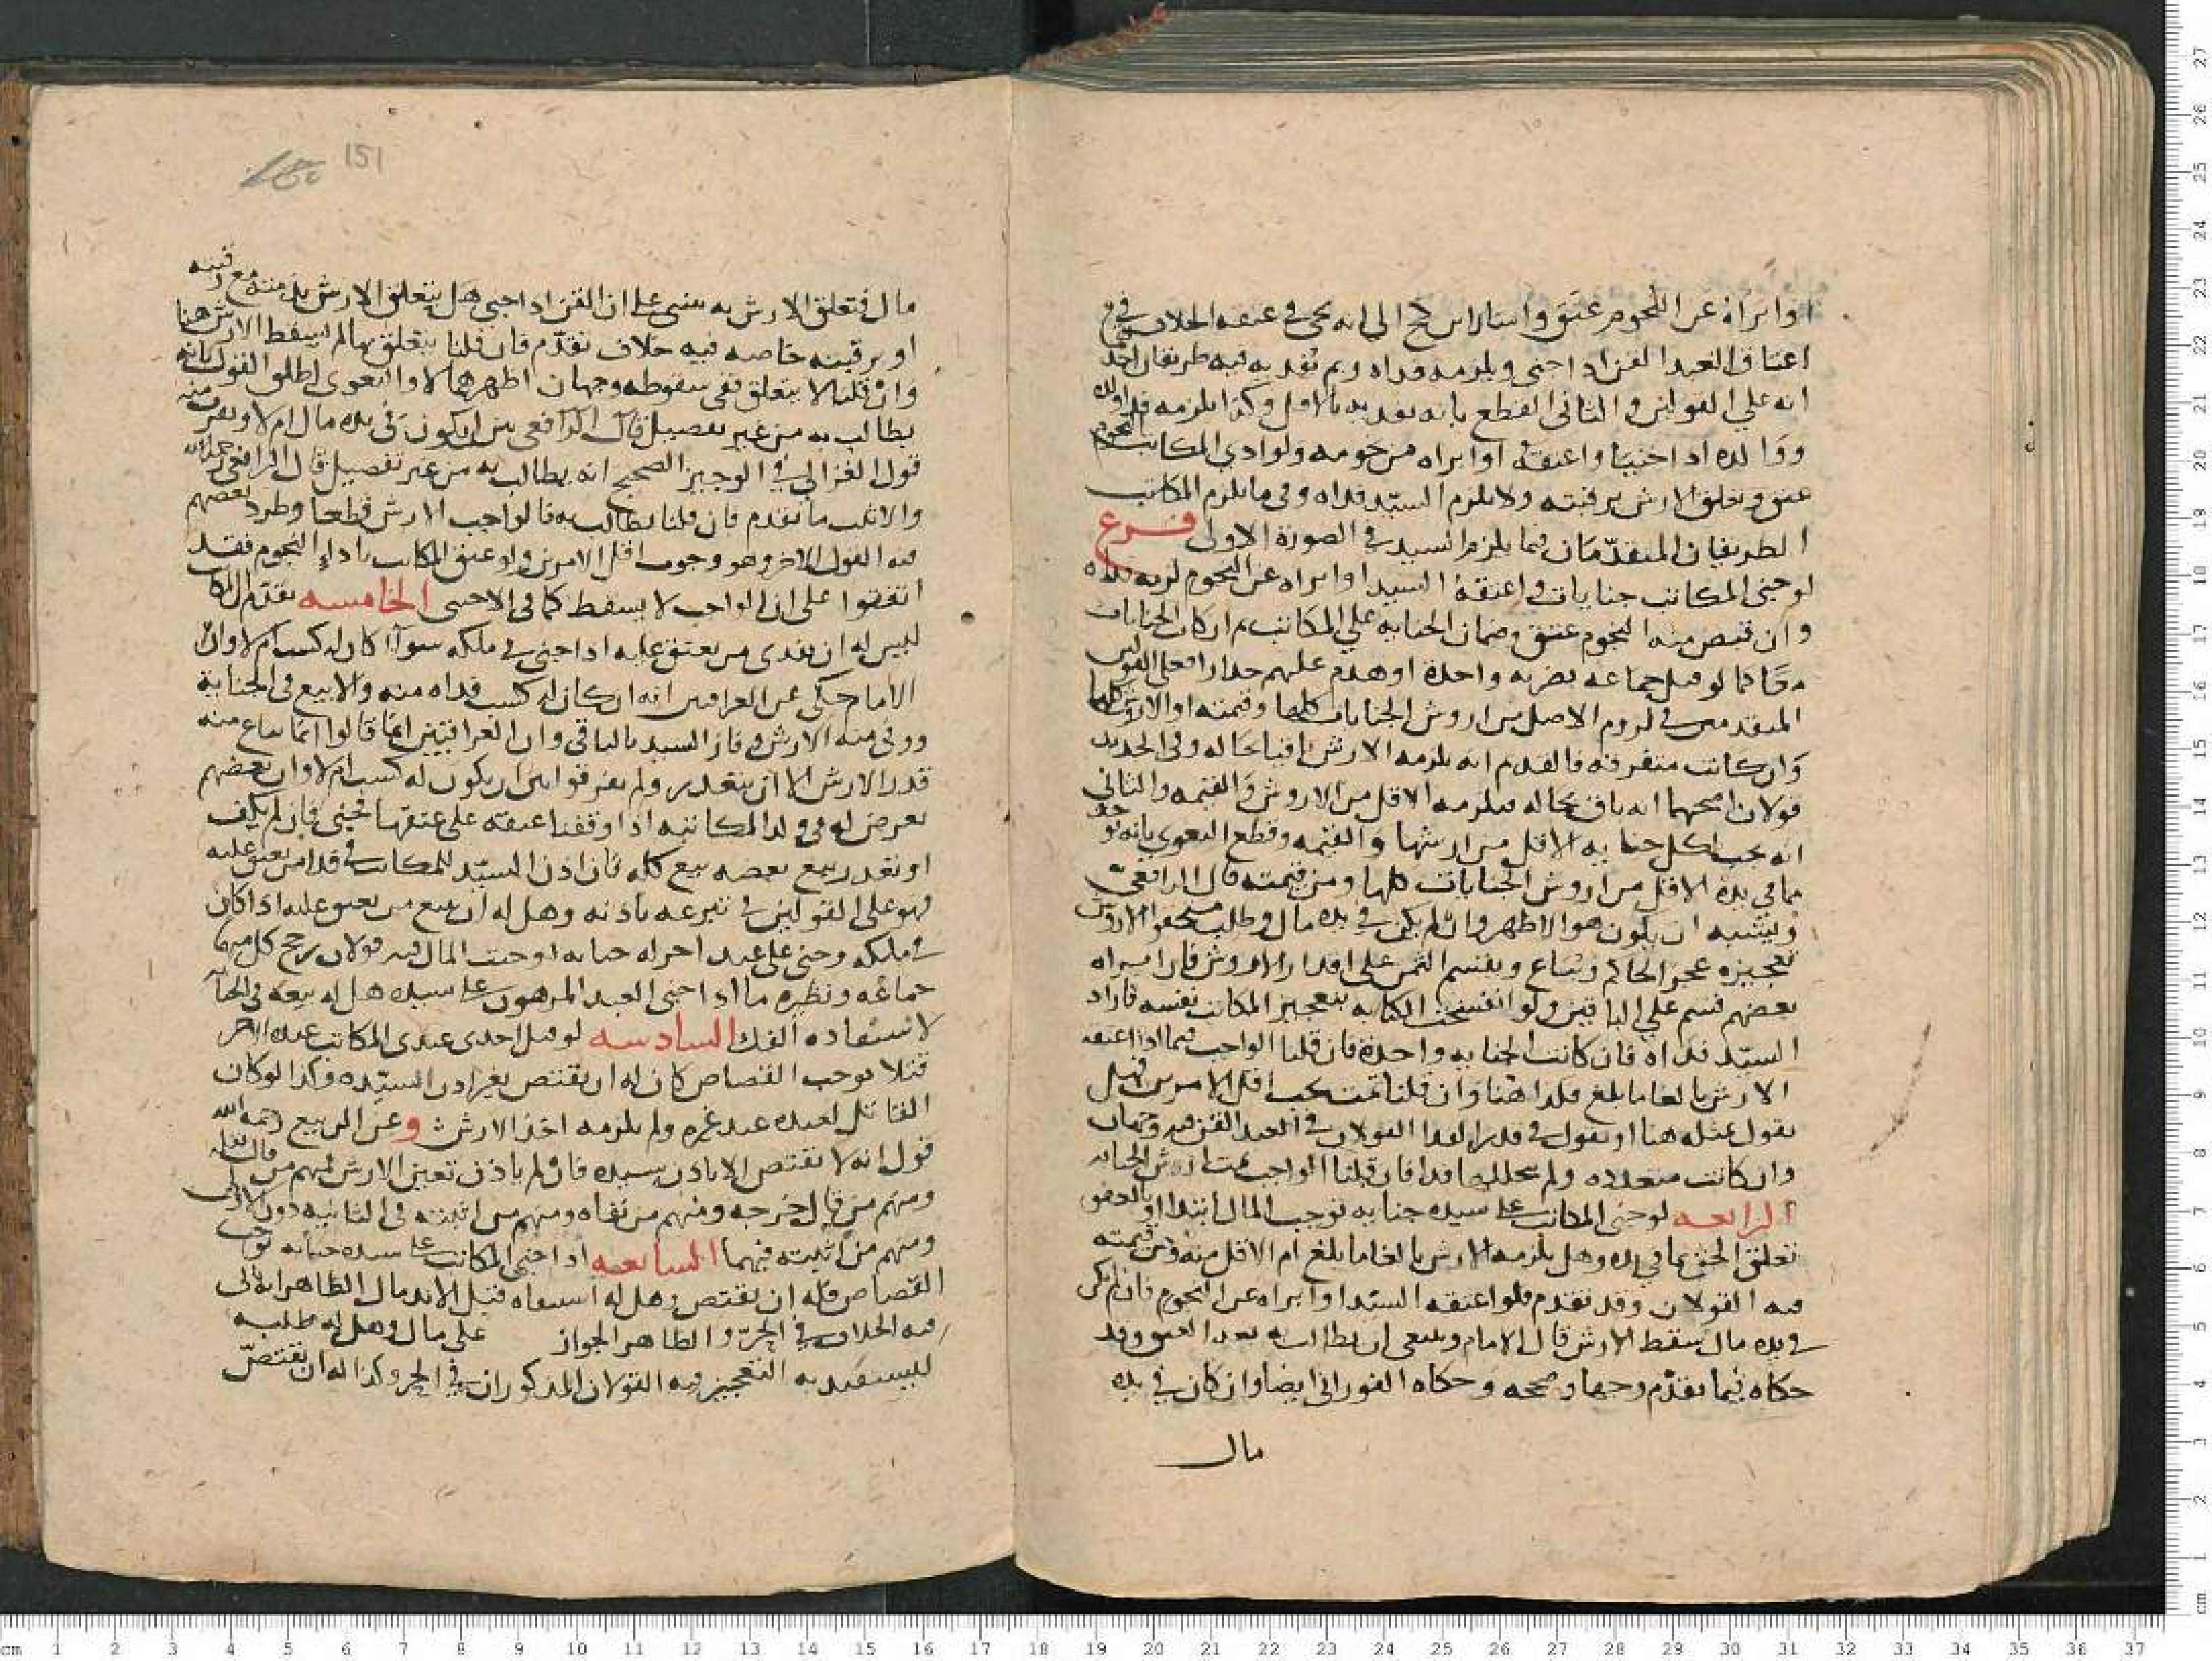 او ابراه عن النجوم عتق واشار ابن كج الى انه يجي في عتقه الخلاف في
اعتاق العبد القن اذا جنى ويلزمه فداه وبم نفديه فيه طريقان احد
انه على القولين والثاني القطع بانه نفديه بالاقل وكذا يلزمه فداوله
ووالده اذا جنيا واعتقه او ابراه من نجومه ولو ادى المكاتب النجوم
عتق وتعلق الارش برقبته ولا يلزم السيد فداه وفي ما يلزم المكاتب
الطريقان المتقدمان فيما يلزم السيد في الصورة الاولى فرع
لو جنى المكاتب جنايات واعتقه السيد او ابراه عن النجوم لزمه فداه
وان قبض منه النجوم عتق وضمان الجناية على المكاتب ثم ان كان الجنايات
معا كما لو قتل جماعه بضربه واحدة او هدم عليهم جدارا فعلى القولين
المتقدمين في لزوم الاصل من اروش الجنايات كلها وقيمته او الاروش كلها
وان كانت متفرقه فالقديم انه يلزمه الارش باقيا بحاله وفي الجديد
قولان اصحهما انه باق بحاله فيلزمه الاقل من الاروش والقيمه والثاني
انه يجب لكل جنايه الاقل من ارشها والقيمه وقطع البغوى بانه يوخذ
مما في يده الاقل من اروش الجنايات كلها ومن قيمته قال الرافعي
ويشبه ان يكون هو الاظهر وان لم يكن في يده مال وطلب مستحقوا الاروش
تعجيزه عجزه الحاكم ويباع ويقسم الثمن على اقدار الاروش فان ابراه
بعضهم قسم على الباقين ولو انفسخت الكتابه بتعجيز المكاتب نفسه فاراد
السيد فداه فان كانت الجنايه واحدة فان قلنا الواجب فيما اذا اعتقه
الارش بالغا ما بلغ فكذا هنا وان قلنا ثمت يجب اقل الامرين فهل
نقول بمثله هنا او نقول في قدر الفدا القولان في العبد القن فيه وجهان
وان كانت متعدده ولم يتخللها فدا فان قلنا الواجب ثمت ارش الجنايه
الرابعه لو جنى المكاتب على سيده جنايه توجب المال ابتدا او بالعفو
تعلق الحق بما في يده وهل يلزمه الارش بالغا ما بلغ ام الاقل منه ومن قيمته
فيه القولان وقد تقدم فلو اعتقه السيد او ابراه عن النجوم فان لم يكن
في يده مال سقط الارش قال الامام وينبغي ان يطالب به بعد العتق وقد
حكاه فيما تقدم وجها وصححه وحكاه الفوراني ايضا وان كان في يده
مال
151
مال فتعلق الارش به مبنى على ان القن اذا جنى هل يتعلق الارش بذمته مع رقبته
او برقبته خاصه فيه خلاف تقدم فان قلنا يتعلق بهما لم يسقط الارش هنا
وان قلنا لا يتعلق ففي سقوطه وجهان اظهرهما لا والبغوى اطلق القول بانه
يطالب به من غير تفصيل قال الرافعي بين ان يكون في يده مال ام لا ويقرب منه
قول الغزالي في الوجيز الصحيح انه يطالب به من غير تفصيل قال الرافعي رحمه الله
والاغلب ما تقدم فان قلنا يطالب به فالواجب الارش قطعا وطرد بعضهم
فيه القول الاخر وهو وجوب اقل الامرين ولو عتق المكاتب باداء النجوم فقد
اتفقوا على ان الواجب لا يسقط كما في الاجنبى الخامسه تقدم ان المكا
ليس له ان يفدى من يعتق عليه اذا جنى في ملكه سوآ كان له كسب ام لا وان
الامام حكى عن العراقيين انه ان كان له كسب فداه منه والا بيع في الجناية
ووفى منه الارش وفاز السيد بالباقي وان العراقيين انما قالوا انما يباع منه
قدر الارش الا ان يتعذر ولم يفرقوا بين ان يكون له كسب ام لا وان بعضهم
تعرض له في ولد المكاتبه اذا وقفنا عتقه على عتقها فجنى فان لم يكف
او تعذر بيع بعضه بيع كله فان اذن السيد للمكاتب في فدا من يعتق عليه
فهو على القولين في تبرعه باذنه وهل له ان يبيع من يعتق عليه اذا كان
في ملكه وجنى على عبد اخر له جنايه اوجبت المال فيه قولان رجح كل منهما
جماعه ونظيره ما اذا جنى العبد المرهون على سيده هل له بيعه في الجنا
لاستفاده الفك السادسه لو قتل احدى عبدى المكاتب عبده الاخر
قتلا يوجب القصاص كان له ان يقتص بغير اذن السيده وكذا لو كان
القاتل لعبده عبد غيره ولم يلزمه اخذ الارش وعن الربيع رحمه الله
قول انه لا يقتص الا باذن سيده فان لم ياذن تعين الارش فمنهم من قال
ومنهم من قال خرجه ومنهم من نفاه ومنهم من اثبته في الثانيه دون الاولى
ومنهم من اثبته فيهما السابعه اذا جنى المكاتب على سيده جنايه توجب
القصاص فله ان يقتص وهل له استيفاه قبل الاندمال الظاهر انه لى
فيه الخلاف في الحر والظاهر الجواز على مال وهل له طلبه
ليستفيد به التعجيز فيه القولان المذكوران في الحر وكذا له ان يقتص